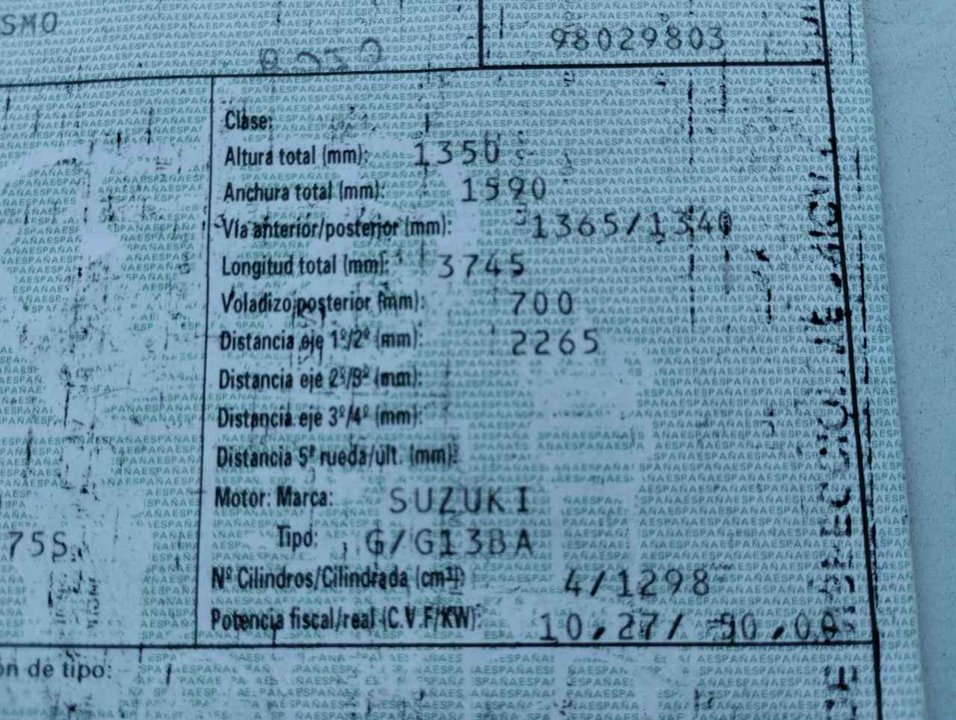 SMO
98029803
Clase:
Altura total (mm): 1350
Anchura total (mm): 1590
Vía anterior/posterior (mm): 1365/1340
Longitud total (mm): 3745
Voladizo posterior (mm): 700
Distancia eje 1º/2º (mm): 2265
Distancia eje 2º/3º (mm):
Distancia eje 3º/4º (mm):
Distancia 5ª rueda/últ. (mm):
Motor: Marca: SUZUKI
Tipo: G/G13BA
75S.
Nº Cilindros/Cilindrada (cm³): 4/1298
Potencia fiscal/real (C.V.F/KW): 10,27/
ón de tipo: